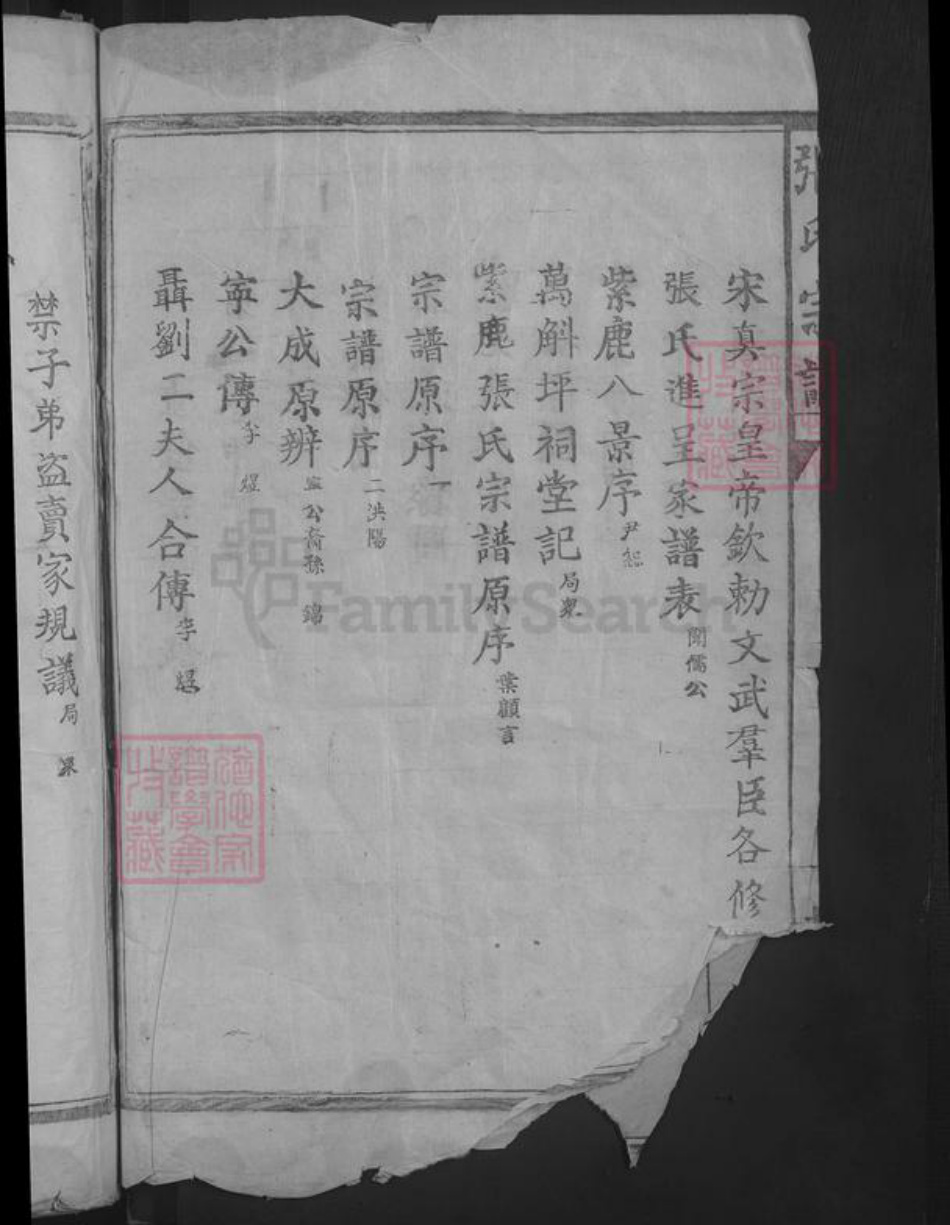 張氏宗譜
宋真宗皇帝欽勅文武羣臣各修
張氏進呈家譜表 閩儒公
紫鹿八景序 尹
萬斛坪祠堂記 局眾
紫鹿張氏宗譜原序 葉顧言
宗譜原序一
宗譜原序 二洪陽
大成原辨 寍公裔孫 錦
寍公傳 李 煜
聶劉二夫人合傳 李 煜
禁子弟盜賣家規議 局 眾
FamilySearch